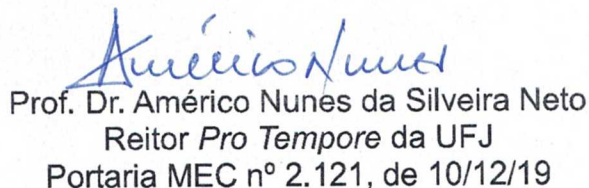 Américo Nunes
Prof. Dr. Américo Nunes da Silveira Neto
Reitor Pro Tempore da UFJ
Portaria MEC nº 2.121, de 10/12/19